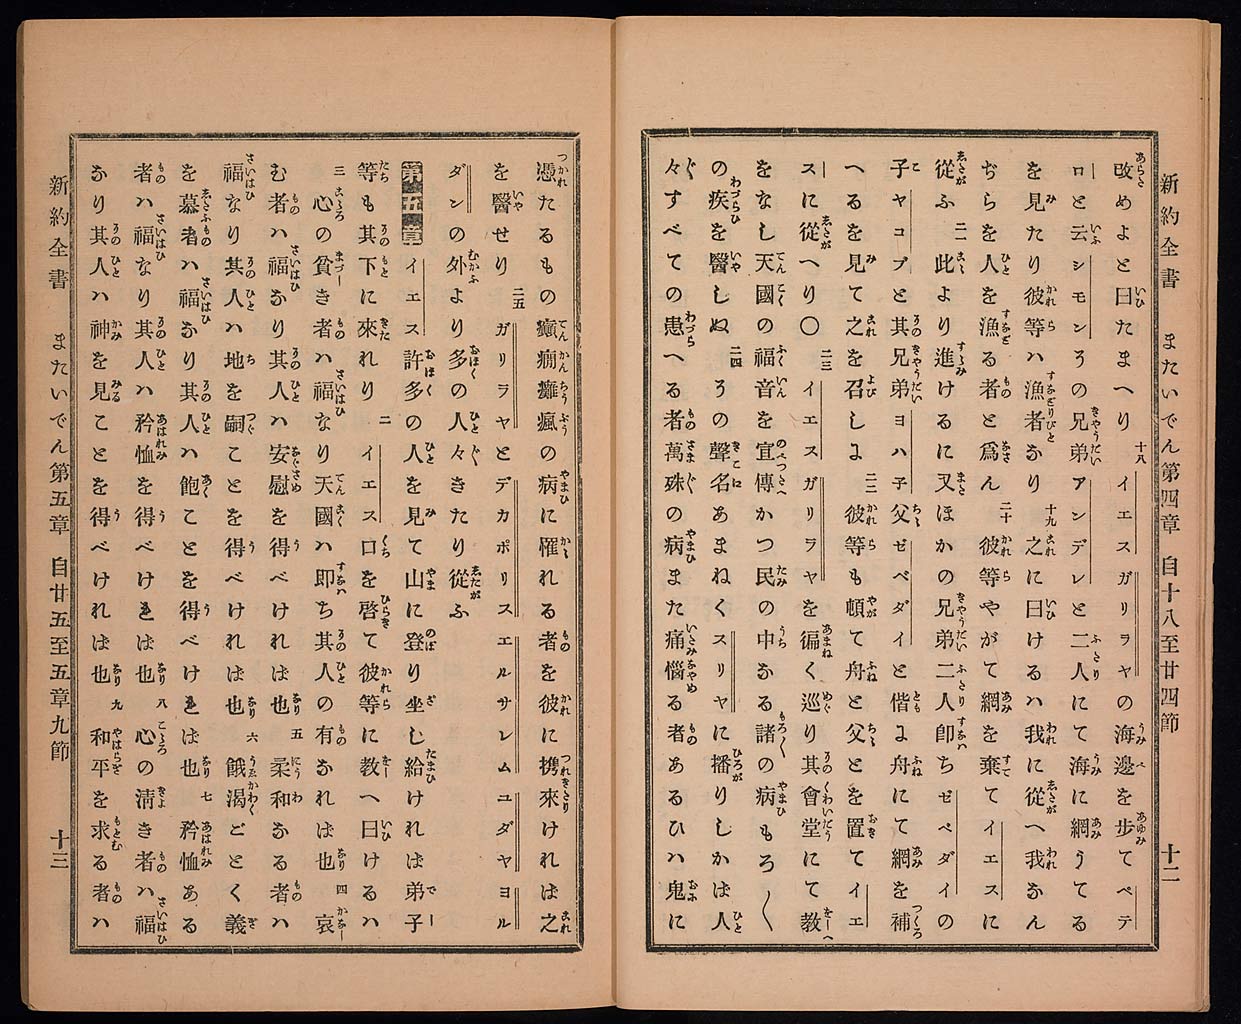 新約全書 またいでん第四章 自十八至廿四節 十二
改めよと曰たまへり 十八 イエスガリラヤの海邊を歩てペテ
ロと云シモンその兄弟アンデレと二人にて海に網うてる
を見たり彼等ハ漁者なり 十九 之に曰けるハ我に從へ我なん
ぢらを人を漁る者と爲ん 二十 彼等やがて網を棄てイエスに
從ふ 二一 此より進けるに又ほかの兄弟二人卽ちゼベダイの
子ヤコブと其兄弟ヨハ子父ゼベダイと偕に舟にて網を補
へるを見て之を召しに 二二 彼等も頓て舟と父とを置てイエ
スに從へり〇 二三 イエスガリラヤを徧く巡り其會堂にて敎
をなし天國の福音を宣傳かつ民の中なる諸の病もろ〱
の疾を醫しぬ 二四 その聲名あまねくスリヤに播りしかば人
々すべての患へる者萬殊の病また痛惱る者あるひハ鬼に
憑たるもの癲癎癱瘋の病に罹れる者を彼に携來ければ之
を醫せり 二五 ガリラヤとデカポリスエルサレムユダヤヨル
ダンの外より多の人々きたり從ふ
第五章 イエス許多の人を見て山に登り坐し給ければ弟子
等も其下に來れり 二 イエス口を啓て彼等に敎へ曰けるハ
三 心の貧き者ハ福なり天國ハ即ち其人の有なれば也 四 哀
む者ハ福なり其人ハ安慰を得べければ也 五 柔和なる者ハ
福なり其人ハ地を嗣ことを得べければ也 六 餓渴ごとく義
を慕者ハ福なり其人ハ飽ことを得べければ也 七 矜恤ある
者ハ福なり其人ハ矜恤を得べければ也 八 心の淸き者ハ福
なり其人ハ神を見ことを得べければ也 九 和平を求る者ハ
新約全書 またいでん第五章 自廿五至五章九節 十三